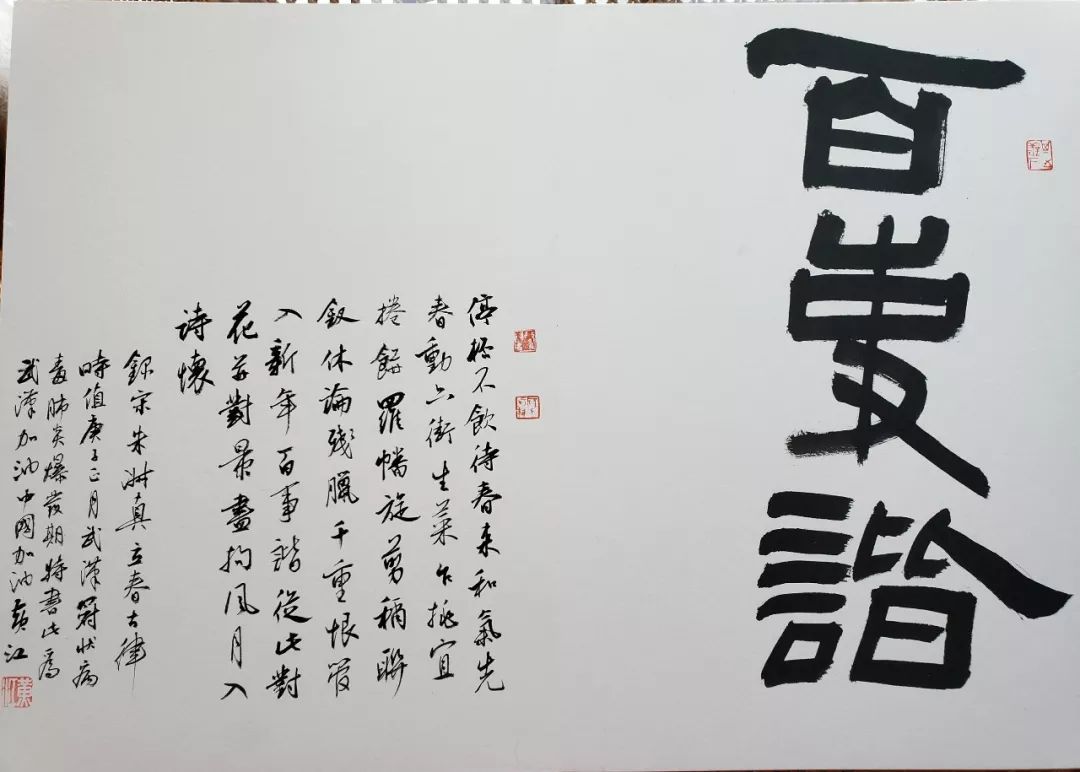 百事諧
停杯不飲待春来和氣先
春動六街生菜乍挑宜
捲餅羅幡旋剪稱聯
釵休論殘臘千重恨管
入新年百事諧從此對
花并對景盡拘風月入
詩懷
錄宋朱淑真立春古律
時值庚子正月武漢冠狀病
毒肺炎爆發期特書此為
武漢加油中國加油黃江